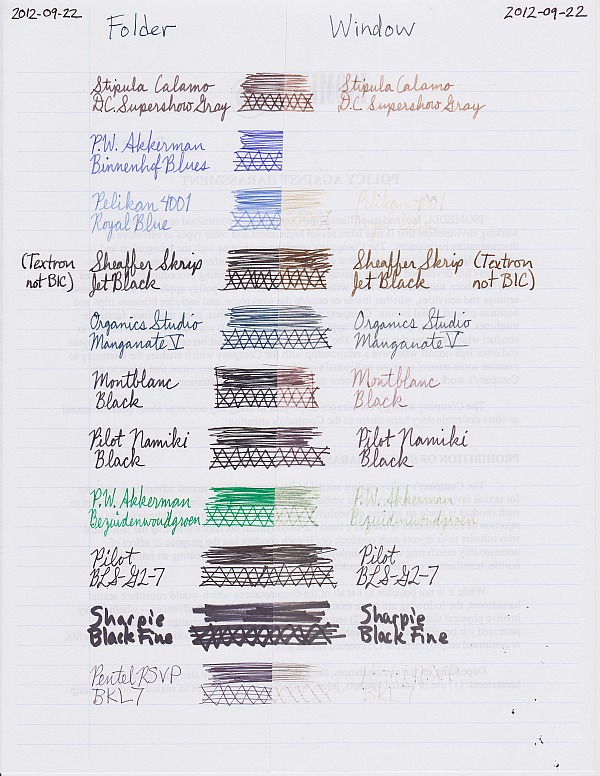 2012-09-22 2012-09-22
Folder Window
Stipula Calamo Stipula Calamo
D.C. Supershow Gray D.C. Supershow Gray
P.W. Akkerman
Binnenhof Blues
Pelikan 4001 Pelikan 4001
Royal Blue
(Textron Sheaffer Skrip Sheaffer Skrip (Textron
not BIC) Jet Black Jet Black not BIC)
Organics Studio Organics Studio
Manganate V Manganate V
Montblanc Montblanc
Black Black
Pilot Namiki Pilot Namiki
Black Black
P.W. Akkerman P.W. Akkerman
Bezuidenwoudgroen Bezuidenwoudgroen
Pilot Pilot
BLS-G2-7 BLS-G2-7
Sharpie Sharpie
Black Fine Black Fine
Pentel RSVP
BKL7 BKL7